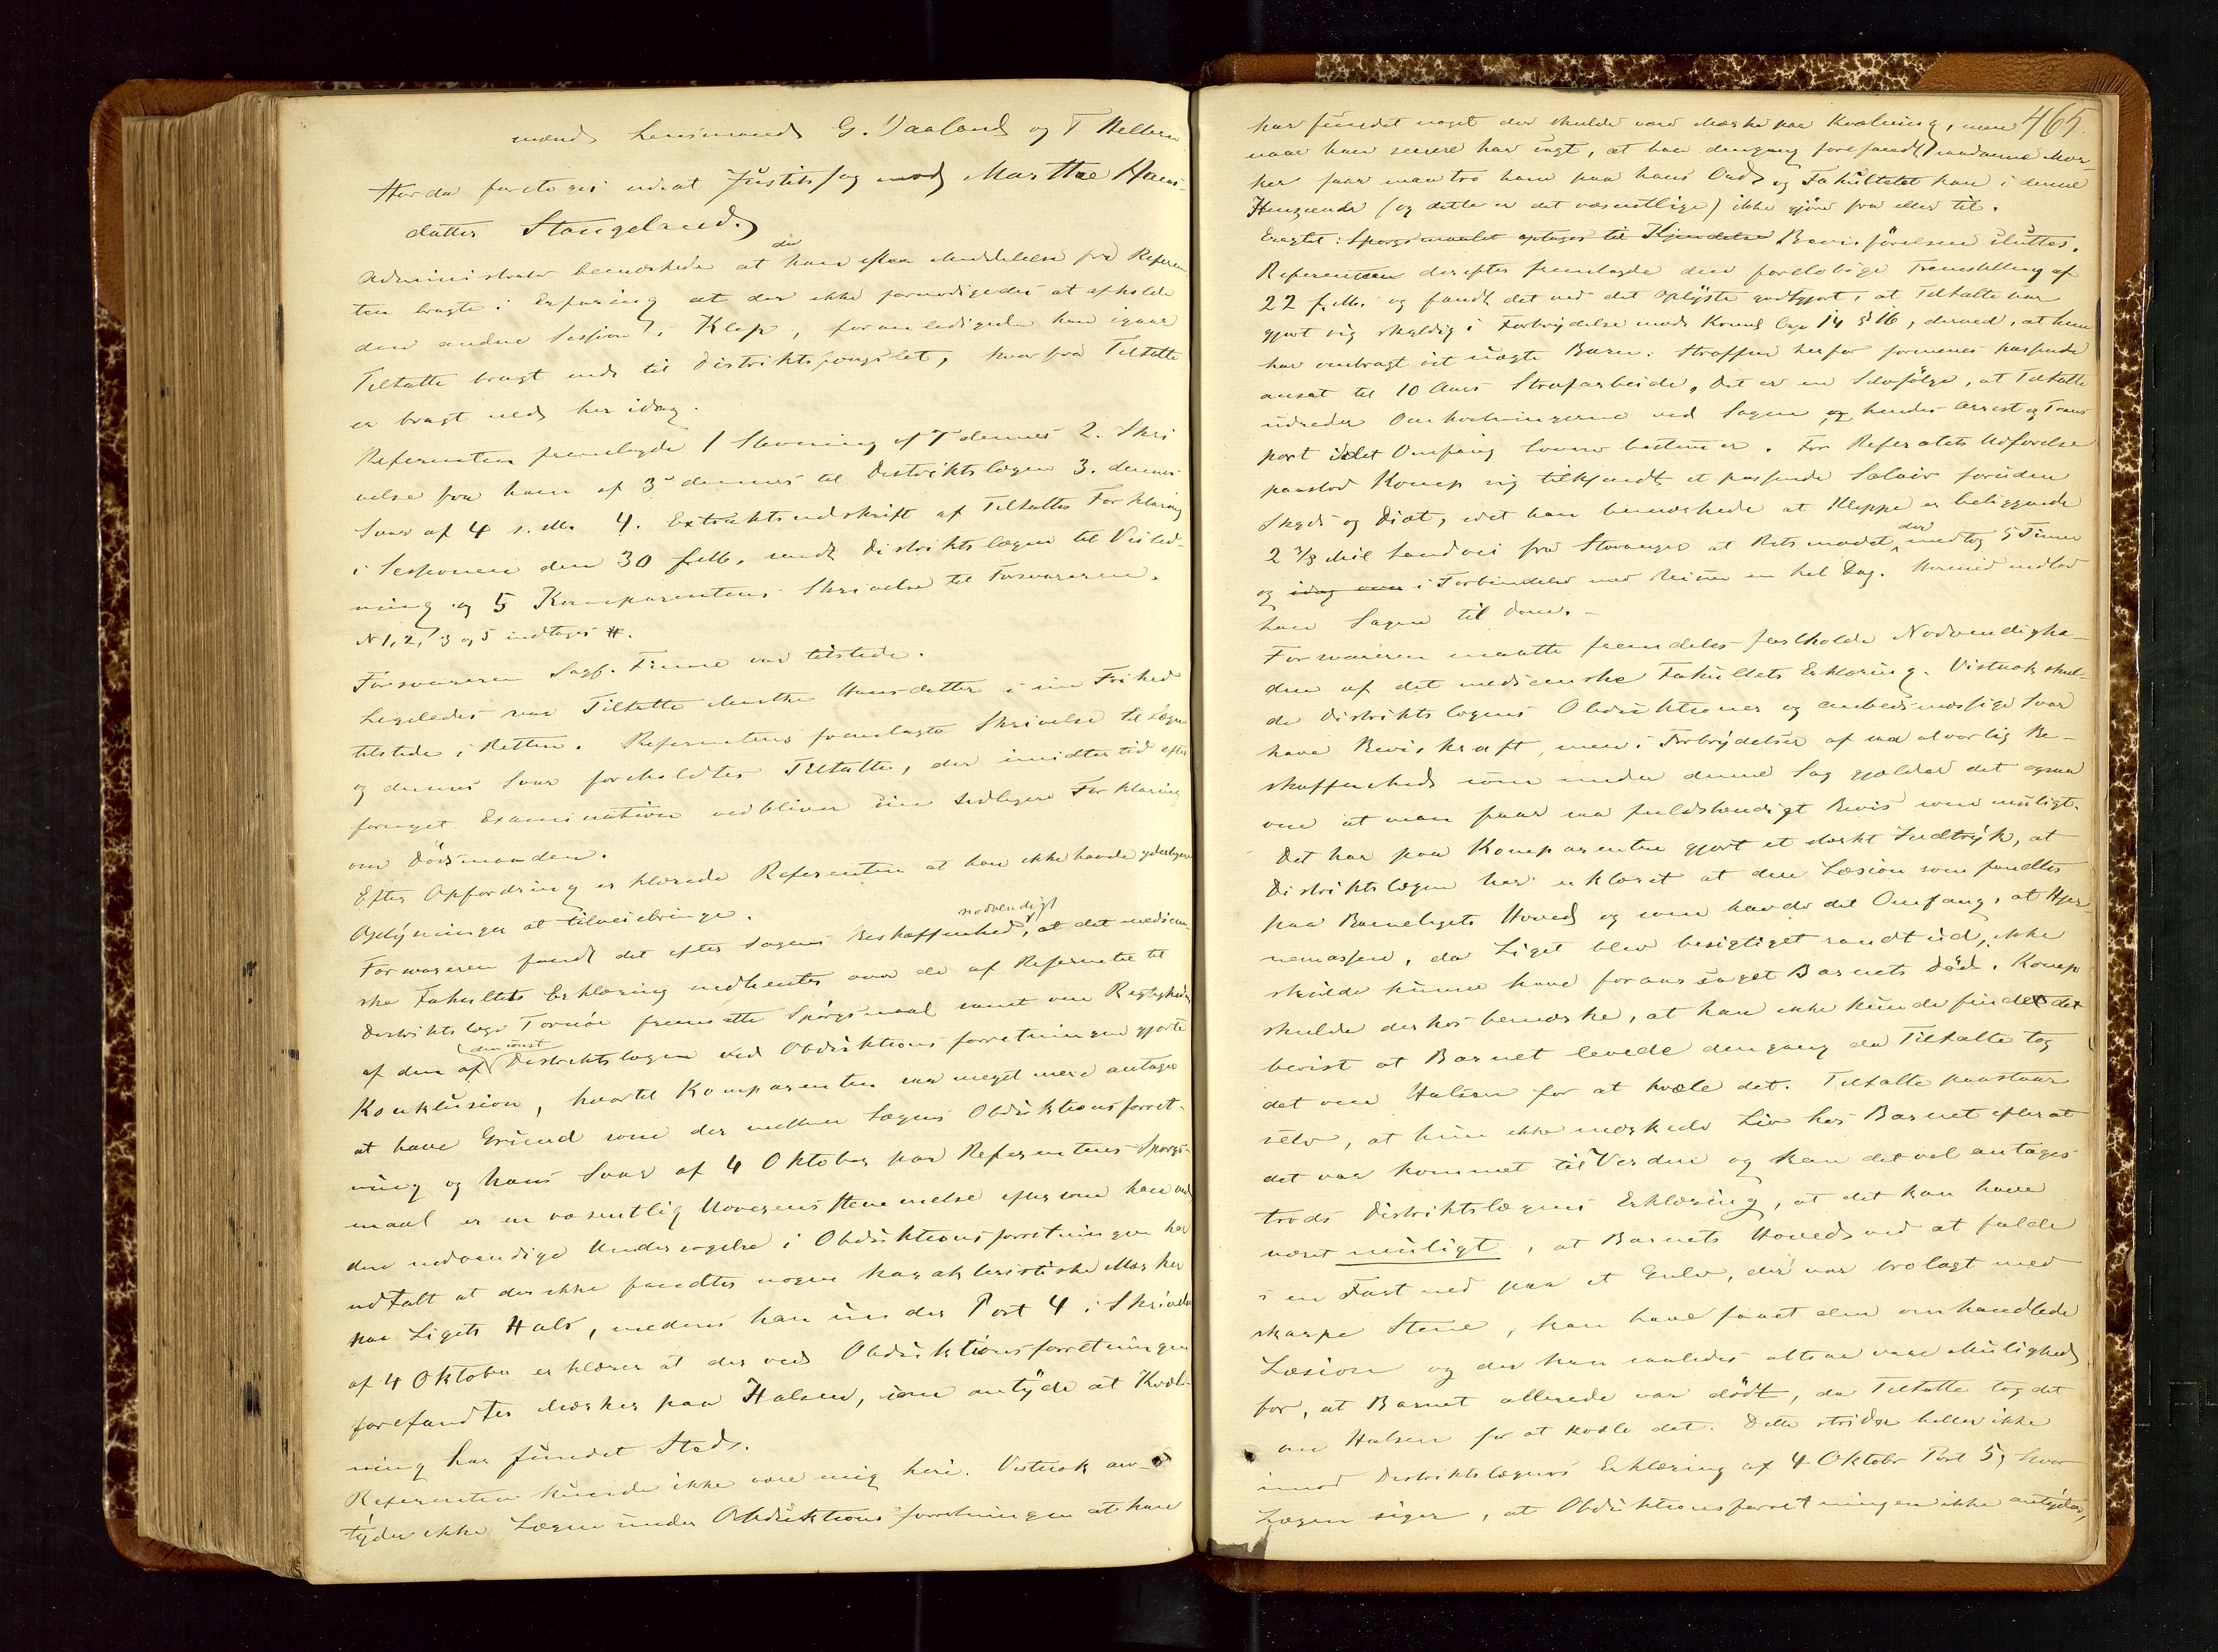 mænd Lensmand G. Vaaland og T Hellern
Hvorda foretoges udsat Justitssag mod Marthe Hans-
datter Stangeland.
Administrator bemærkede at da han efter Meddelelse fra Referen
ten bragte i Erfaring at der ikke formodigedes at afholde
den anden Session i Klep, foranledigede han igaar
Tiltalte bragt ind til Distriktsfængslet, hvorfra Tiltalte
er bragt ned her idag.
Referenten fremlagde 1 Stevning af 7 dennes 2. Skri
velse fra ham af 3 dennes til Distriktslægen 3. dennes
Svar af 4 s. M. 4. Extraktudskrift af Tiltaltes Forklaring
i Sessionen den 30 f.M. sendt Distriktslægen til Veiled-
ning og 5 Komparentens Skrivelse til Forsvareren.
N 1, 2, 3 og 5 indtages #.
Forsvareren Sagf. Finne var tilstede.
Ligeledes var Tiltalte Marthe Hansdatter i sin Frihed
tilstede i Retten. Referentens fremlagte Skrivelse til Lægen
og dennes Svar foreholdtes Tiltalte, der imidlertid efter
fornyet Examination vedbliver sin tidligere Forklaring
om Dødsmaaden.
Efter Opfordring erklærede Referenten at han ikke havde yderligere
Oplysninger at tilveiebringe.
Forsvareren fandt det efter Sagens Beskaffenhed nødvendigt, at det medicin-
ske Fakultets Erklæring indhentes over de af Referenten til
Distriktslæge Tornøe fremsatte Spørgsmaal samt om Rigtigheden
af den af den constt Distriktslægen ved Obduktionsforretningen gjorte
Konklusion, hvortil Komparenten saa meget mere antages
at have Grund som der mellem Lægens Obduktionsforret-
ning og hans Svar af 4 Oktober paa Referentens Spørgs-
maal er en væsentlig Uoverensstemmelse eftersom han ved
den nødvendige Undersøgelse i Obduktionsforretningen har
udtalt at der ikke fandtes nogen karakteristiske Mærker
paa Ligets Hals, medens han under Post 4 i Skrivelse
af 4 Oktober erklærer at der ved Obduktionsforretningen
forefandtes Mærker paa Halsen, som antyde at Kvæl-
ning har fundet Sted.
Referenten kunde ikke være enig heri. Vistnok an-
tyder ikke Lægen under Obduktionsforretningen at han
465
har fundet noget der skulde være Mærke paa Kvælning, men
naar han senere har sagt, at han dengang forefandt saadanne Mær-
ker faar man tro ham paa hans Ord og Fakultetet kan i denne
Henseende (og dette er det væsentlige) ikke gjøre fra eller til.
Eragtet: Spørgsmaalet optages til Kjendelse Bevisførelsen sluttes.
Referenten derefter fremlagde den foreløbige Fremstilling af
22 f.M. og fandt det ved det oplyste godtgjort, at Tiltalte har
gjort sig skyldig i Forbrydelse mod Krml Cap 14 § 16, derved, at hun
har ombragt sit uægte Barn. Straffen herfor formenes passende
ansat til 10 Aars Strafarbeide. Det er en Selvfølge, at Tiltalte
udreder Omkostningerne ved Sagen og hendes Arrest og Trans
port i det Omfang Loven bestemmer. For Referatets Udførelse
paastod Komp sig tilkjendt et passende Salair foruden
Skyds og Diæt, idet han bemærkede at Kleppe er beliggende
2 3/8 Mil Landvei fra Stavanger at Retsmødet der medtog 5 Timer
og idag var i Forbindelse med Reisen en hel Dag. Hermed indlod
han Sagen til Doms. -
Forsvareren maatte fremdeles fastholde Nødvendighe-
den af det medicinske Fakultets Erklæring. Vistnok skul-
de Distriktslægens Obduktioner og embedsmæssige Svar
have Beviskraft, men i Forbrydelser af saa alvorlig Be-
skaffenhed som under denne Sag gjælder det ogsaa
om at man faar saa fuldstændigt Bevis som muligt.
Det har paa Komparenten gjort et stærkt Indtryk, at
Distriktslægen har erklæret at den Læsion som fandtes
paa Barneligets Hoved og som havde det Omfang, at Hjer-
nemassen, da Liget blev besigtiget randt ud, ikke
skulde kunne have foraarsaget Barnets Død. Komp
skulde derhos bemærke, at han ikke kunde finde det
bevist at Barnet levede dengang da Tiltalte tog
det om Halsen for at kvæle det. Tiltalte paastaar
selv, at hun ikke mærkede Liv hos Barnet efterat
det var kommet til Verden og kan det vel antages
trods Distriktslægens Erklæring, at det kan have
været muligt, at Barnets Hoved ved at falde
i en Fart ned paa et Gulv, der var brolagt med
skarpe Stene, kan have faaet den omhandlede
Læsion og der kan saaledes altsaa være Mulighed
for, at Barnet allerede var dødt, da Tiltalte tog det
om Halsen for at kvæle det. Dette strider heller ikke
imod Distriktslægens Erklæring af 4 Oktobr Post 5, hvor
Lægen siger, at Obduktionsforretningen ikke antyder,